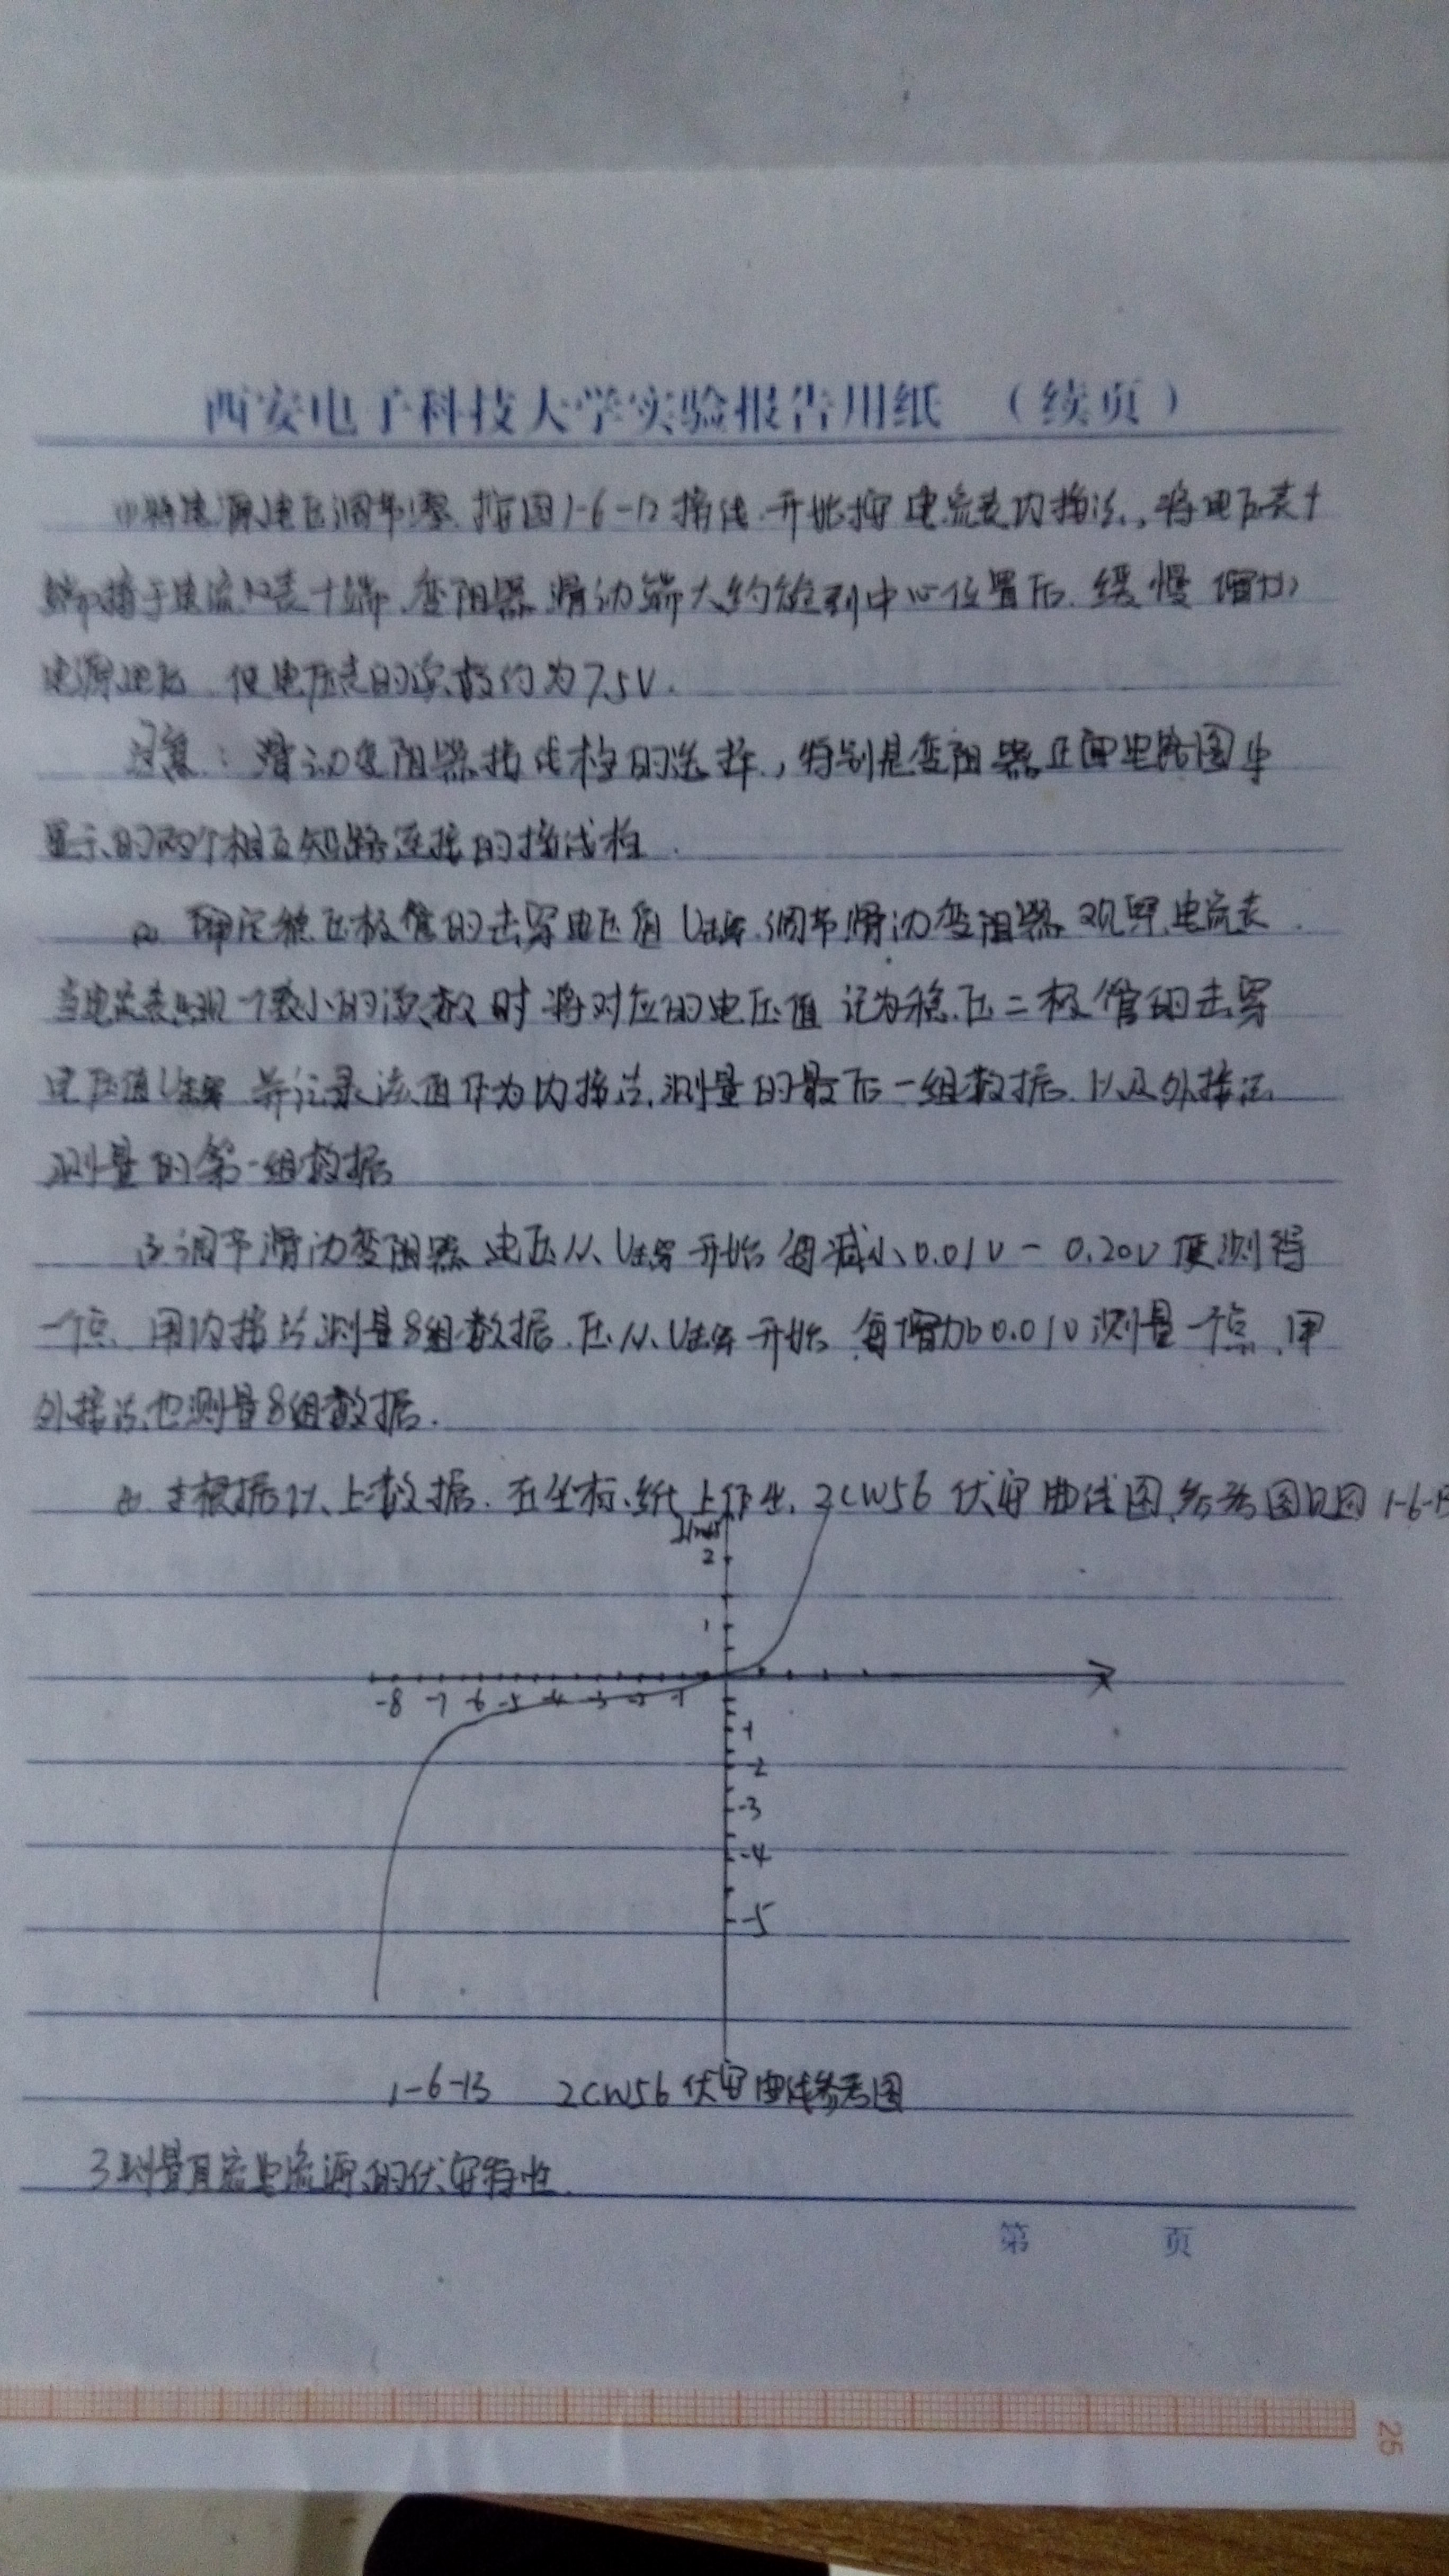 西安电子科技大学实验报告用纸 （续页）
(1)将电源电压调节零.按图1-6-12接线.开始按电流表内接法.,将电压表+
端接于电流表+端.变阻器滑动端大约放到中心位置后.缓慢增加
电源电压 使电压表的读数约为7.5V.
注意:滑动变阻器接线柱的选择,特别是变阻器正面电路图中
显示的两个相互短路连接的接线柱.
(2) 确定稳压极管的击穿电压值U击穿.调节滑动变阻器 观察电流表.
当电流表出现一个最小的读数时 将对应的电压值 记为稳压二极管的击穿
电压值U击穿 并记录该值作为内接法.测量的最后一组数据.以及外接法
测量的第一组数据
(3)调节滑动变阻器 电压从U击穿开始 每减小0.01V-0.20V便测得
一个点.用内接法测量8组数据.压从U击穿开始 每增加0.01V测量一个点.用
外接法也测量8组数据.
(4) 根据以上数据.在坐标纸上作出.2CW56伏安曲线图.参考图见图1-6-13
I(mA)
2
1
-8 -7 -6 -5 -4 -3 -2 -1
-1
-2
-3
-4
-5
1-6-13 2CW56伏安曲线参考图
3测量直流电流源的伏安特性.
第 页
25